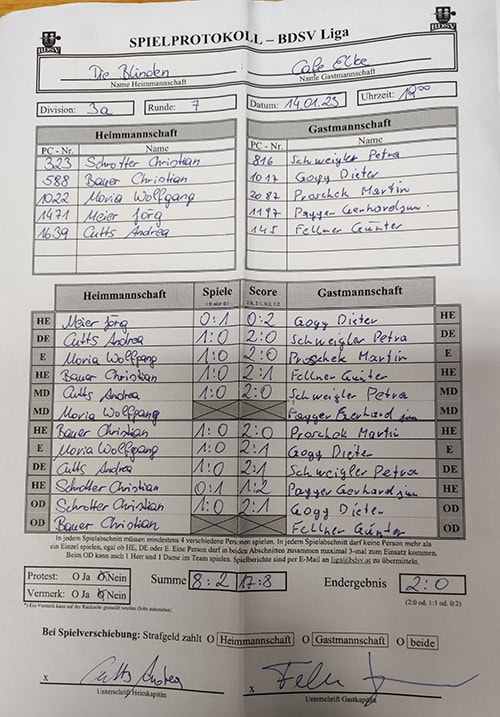 SPIELPROTOKOLL – BDSV Liga
BDSV BDSV
Die Blinden Cafe Elke
Name Heimmannschaft Name Gastmannschaft
Division: 3a Runde: 7 Datum: 14.01.23 Uhrzeit: 19:00
Heimmannschaft Gastmannschaft
PC - Nr. Name PC - Nr. Name
323 Schrotter Christian 816 Schweigler Petra
588 Bauer Christian 1017 Gogy Dieter
1022 Moria Wolfgang 2087 Proschek Martin
1471 Meier Jörg 1197 Payger Gerhard jun.
1639 Cutts Andrea 145 Fellner Günter
Heimmannschaft Spiele Score Gastmannschaft
1:0 oder 0:1 2:0, 2:1, 0:2, 1:2
HE Meier Jörg 0:1 0:2 Gogy Dieter HE
DE Cutts Andrea 1:0 2:0 Schweigler Petra DE
E Moria Wolfgang 1:0 2:0 Proschek Martin E
HE Bauer Christian 1:0 2:0 Fellner Günter HE
MD Cutts Andrea 1:0 2:0 Schweigler Petra MD
MD Moria Wolfgang Payger Gerhard jun MD
HE Bauer Christian 1:0 2:0 Proschek Martin HE
E Moria Wolfgang 1:0 2:1 Gogy Dieter E
DE Cutts Andrea 1:0 2:1 Schweigler Petra DE
HE Schrotter Christian 0:1 1:2 Payger Gerhard jun HE
OD Schrotter Christian 1:0 2:1 Gogy Dieter OD
OD Bauer Christian Fellner Günter OD
In jedem Spielabschnitt müssen mindestens 4 verschiedene Personen spielen. In jedem Spielabschnitt darf keine Person mehr als
ein Einzel spielen, egal ob HE, DE oder E. Eine Person darf in beiden Abschnitten zusammen maximal 3-mal zum Einsatz kommen.
Beim OD kann auch 1 Herr und 1 Dame im Team spielen. Spielberichte sind per E-Mail an liga@bdsv.at zu übermitteln.
Protest: O Ja O Nein Summe 8:2 17:8 Endergebnis 2:0
Vermerk: O Ja O Nein (2:0 od. 1:1 od. 0:2)
*) Ein Vermerk kann auf der Rückseite gemacht werden (bitte mitsenden)
Bei Spielverschiebung: Strafgeld zahlt O Heimmannschaft O Gastmannschaft O beide
x Cutts Andrea x
Unterschrift Heimkapitän Unterschrift Gastkapitän